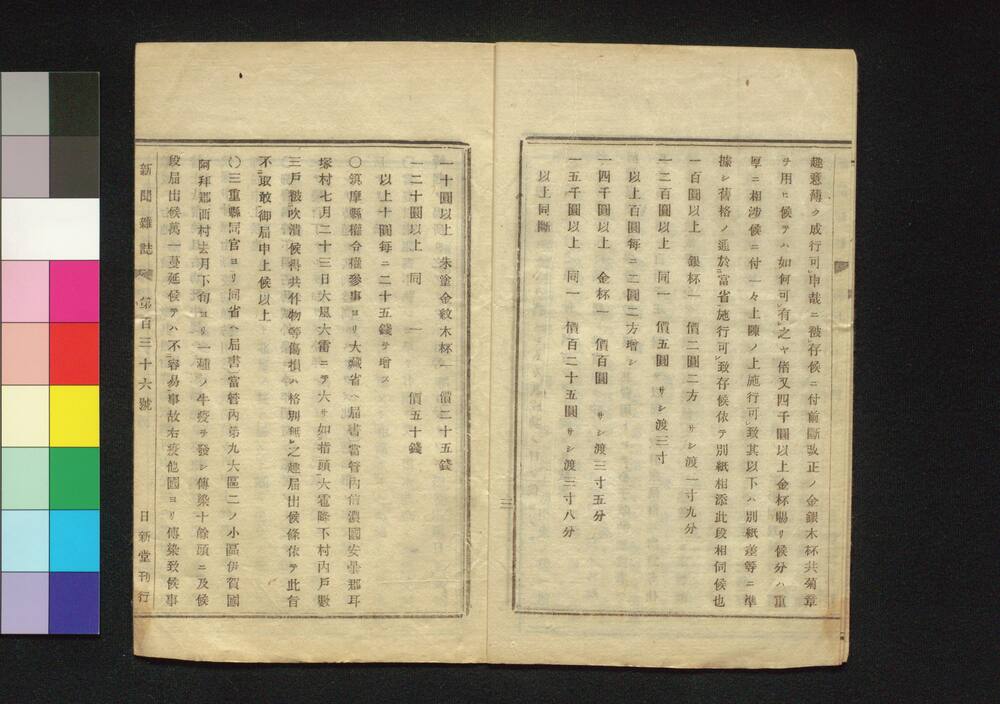 趣意薄ク成行可申哉ニ被存候ニ付前斷改正ノ金銀木杯共菊章
ヲ用ヒ候テハ如何可有之ヤ偖又四千圓以上金杯賜リ候分ハ重
厚ニ相渉候ニ付一々上陳ノ上施行可致其以下ハ別紙差等ニ準
據シ舊格ノ通於當省施行可致存候依テ別紙相添此段相伺候也
一百圓以上 銀杯一 價二圓二方 サシ渡一寸九分
一二百圓以上 同一 價五圓 サシ渡三寸
以上百圓毎ニ二圓二方增シ
一四千圓以上 金杯一 價百圓 サシ渡三寸五分
一五千圓以上 同一 價百二十五圓 サシ渡三寸八分
以上同斷
三
一十圓以上 朱塗金紋木杯一 價二十五錢
一二十圓以上 同 一 價五十錢
以上十圓毎ニ二十五錢ヲ增ス
〇筑摩縣權令權參事ヨリ大藏省ヘ届書當管内信濃國安曇郡耳
塚村七月二十三日大風大雷ニテ大サ如指頭大雹降下村内戸數
三戸被吹潰候得共作物等傷損ハ格別無之趣届出候條依テ此旨
不取敢御届申上候以上
〇三重縣同官ヨリ同省ヘ届書當管内第九大區二ノ小區伊賀國
阿拜郡西村去月下旬ヨリ一種ノ牛疫ヲ發シ傳染十餘頭ニ及候
段届出候萬一蔓延候テハ不容易事故右疫他國ヨリ傳染致候事
新聞雜誌 第百三十六號 日新堂刊行